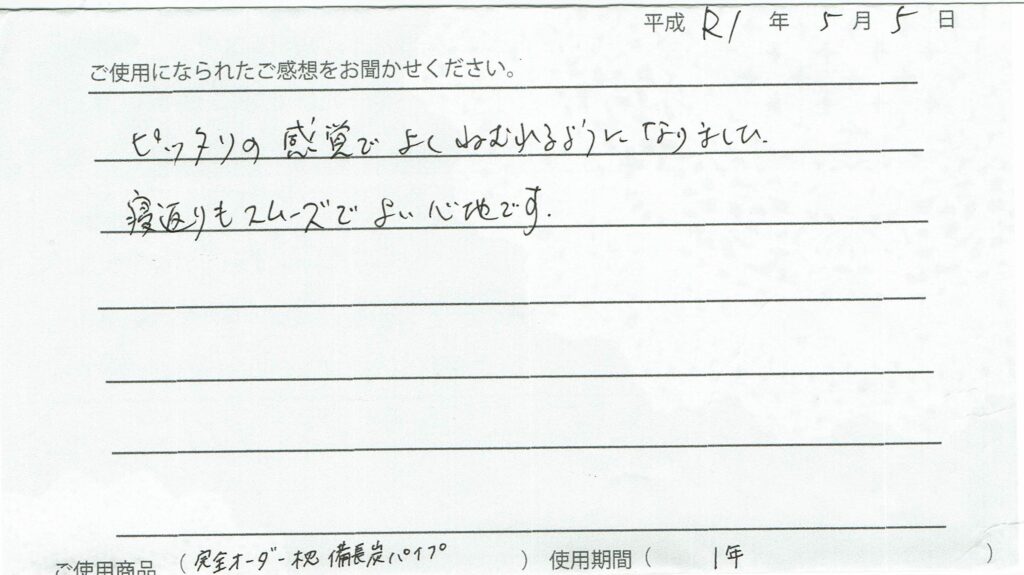 平成 R1 年 5 月 5 日
ご使用になられたご感想をお聞かせください。
ピッタリの感覚でよくねむれるようになりました.
寝返りもスムーズでよい心地です.
ご使用商品 (完全オーダー枕 備長炭パイプ) 使用期間 ( 1年 )